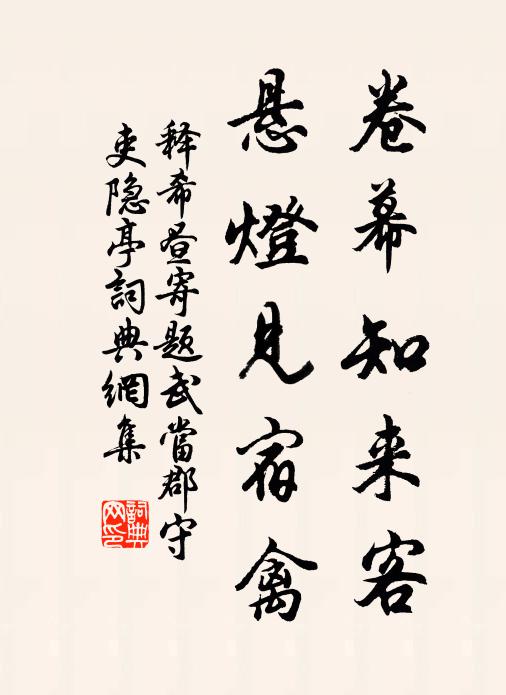 卷幕知来客
悬燈見宿禽
释希昼寄题武當郡守
吏隐亭詞典網集
詞典网印